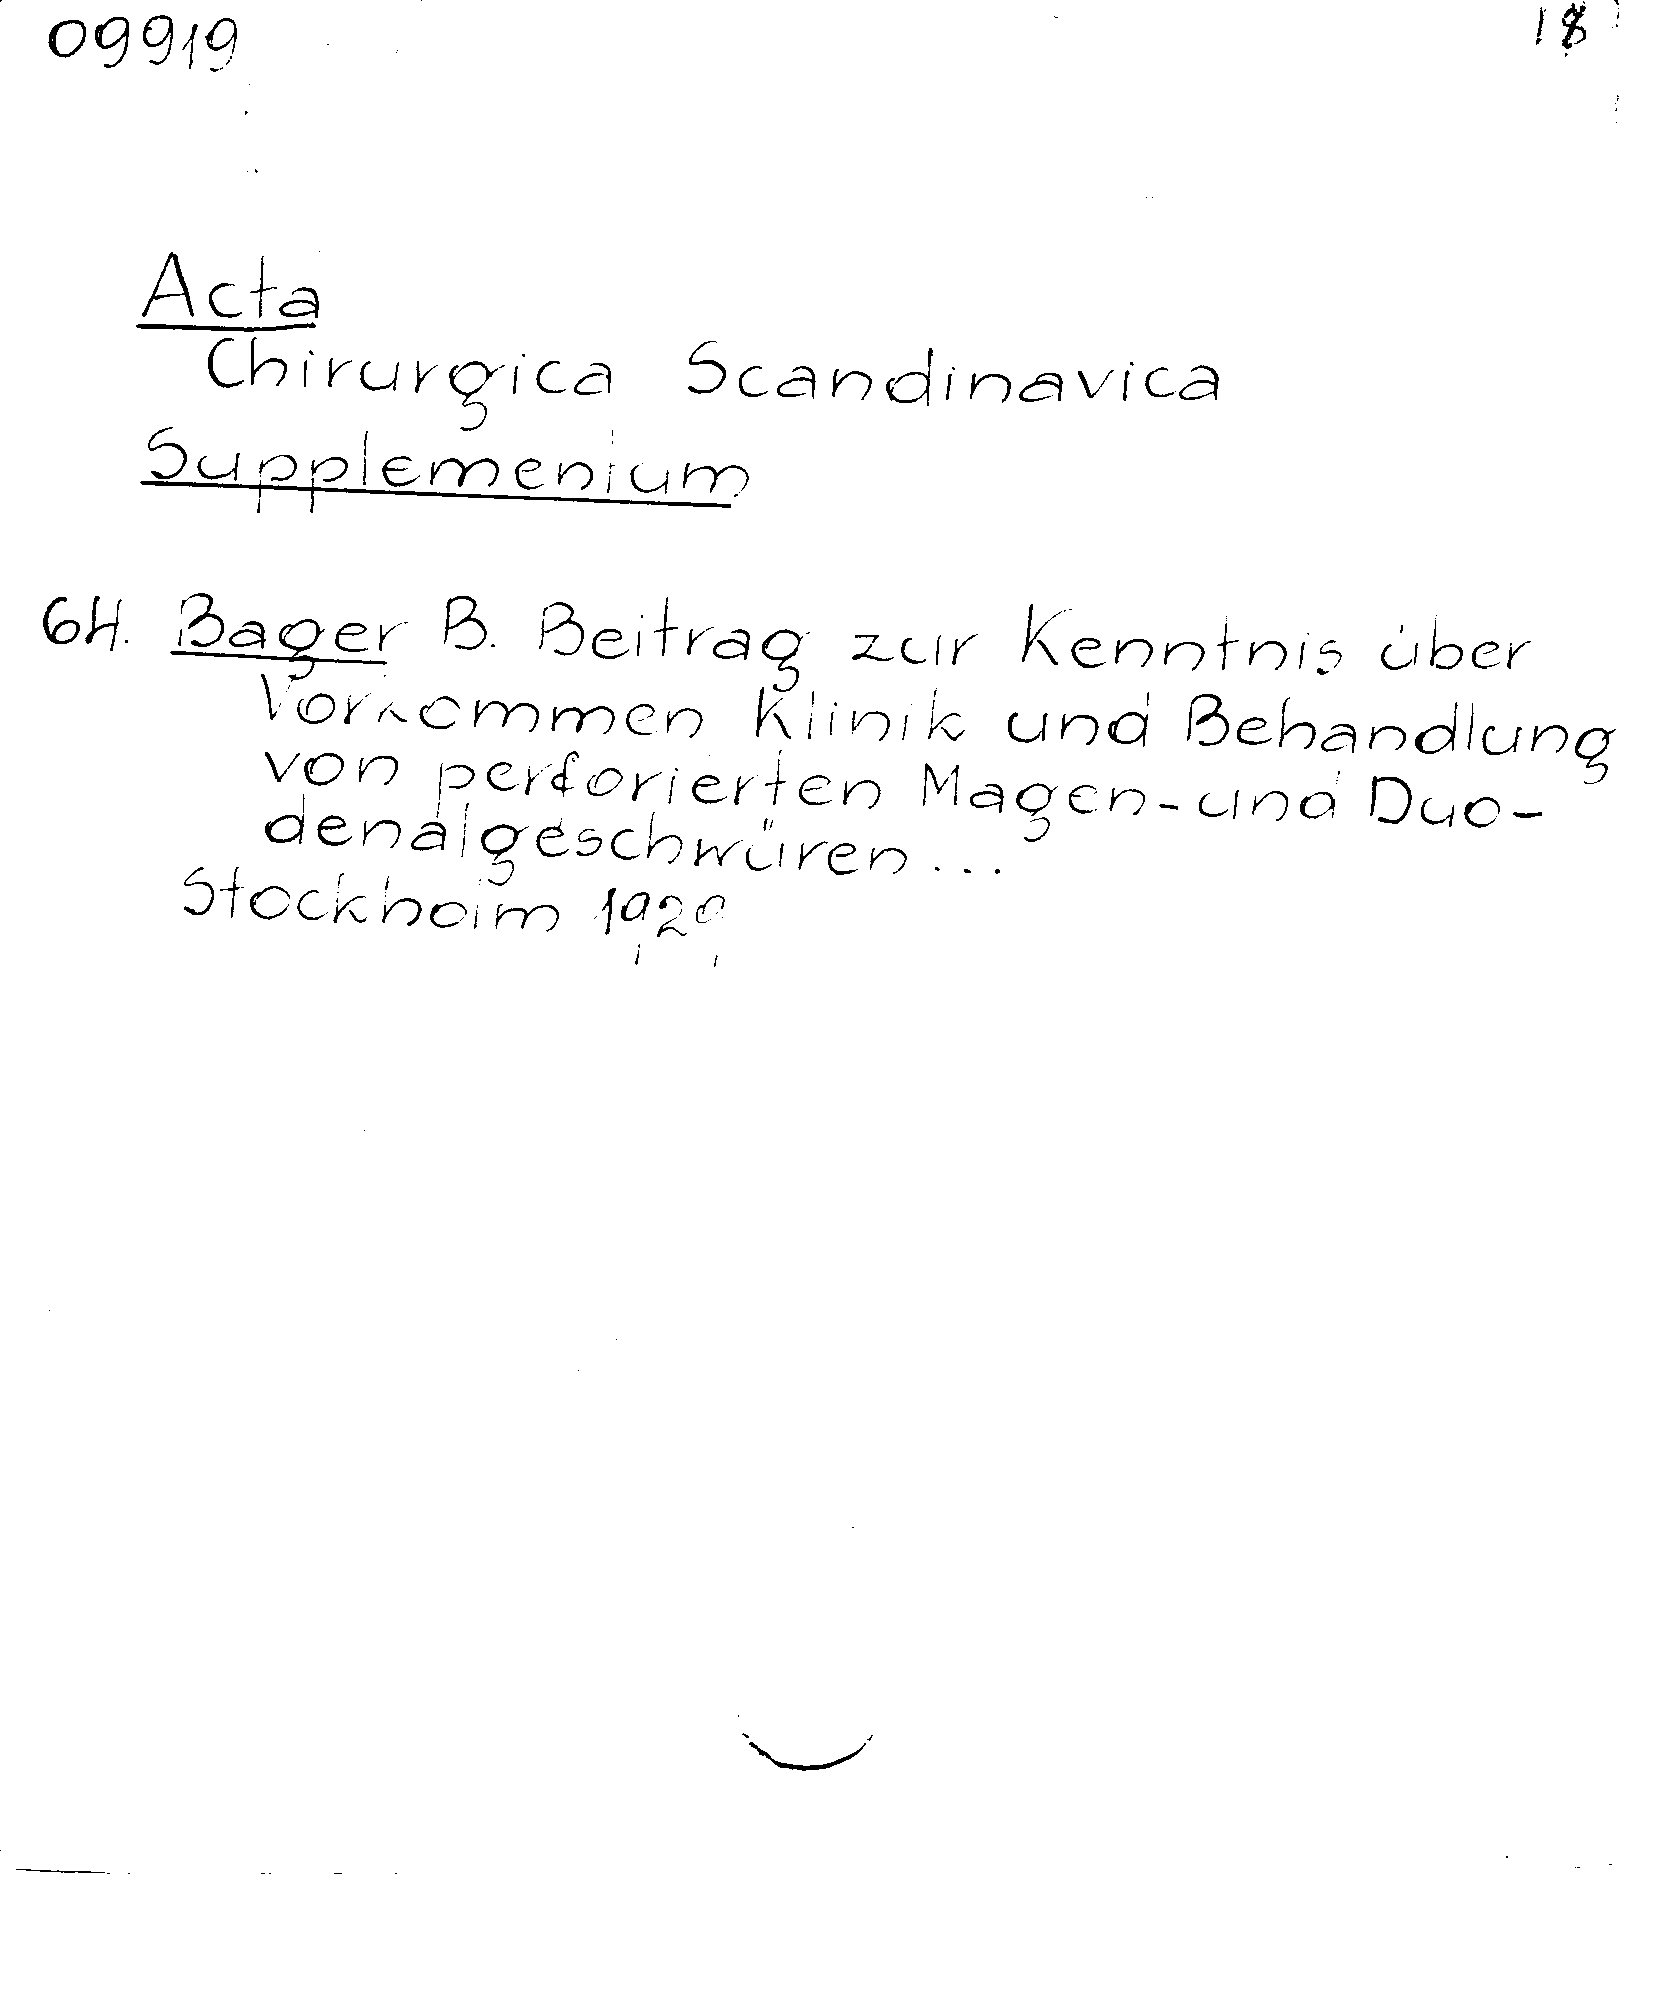 09919 18
Acta
Chirurgica Scandinavica
Supplementum
64. Bager B. Beitrag zur Kenntnis über
Vorkommen Klinik und Behandlung
von perforierten Magen-und Duo-
denalgeschwüren...
Stockholm 1929